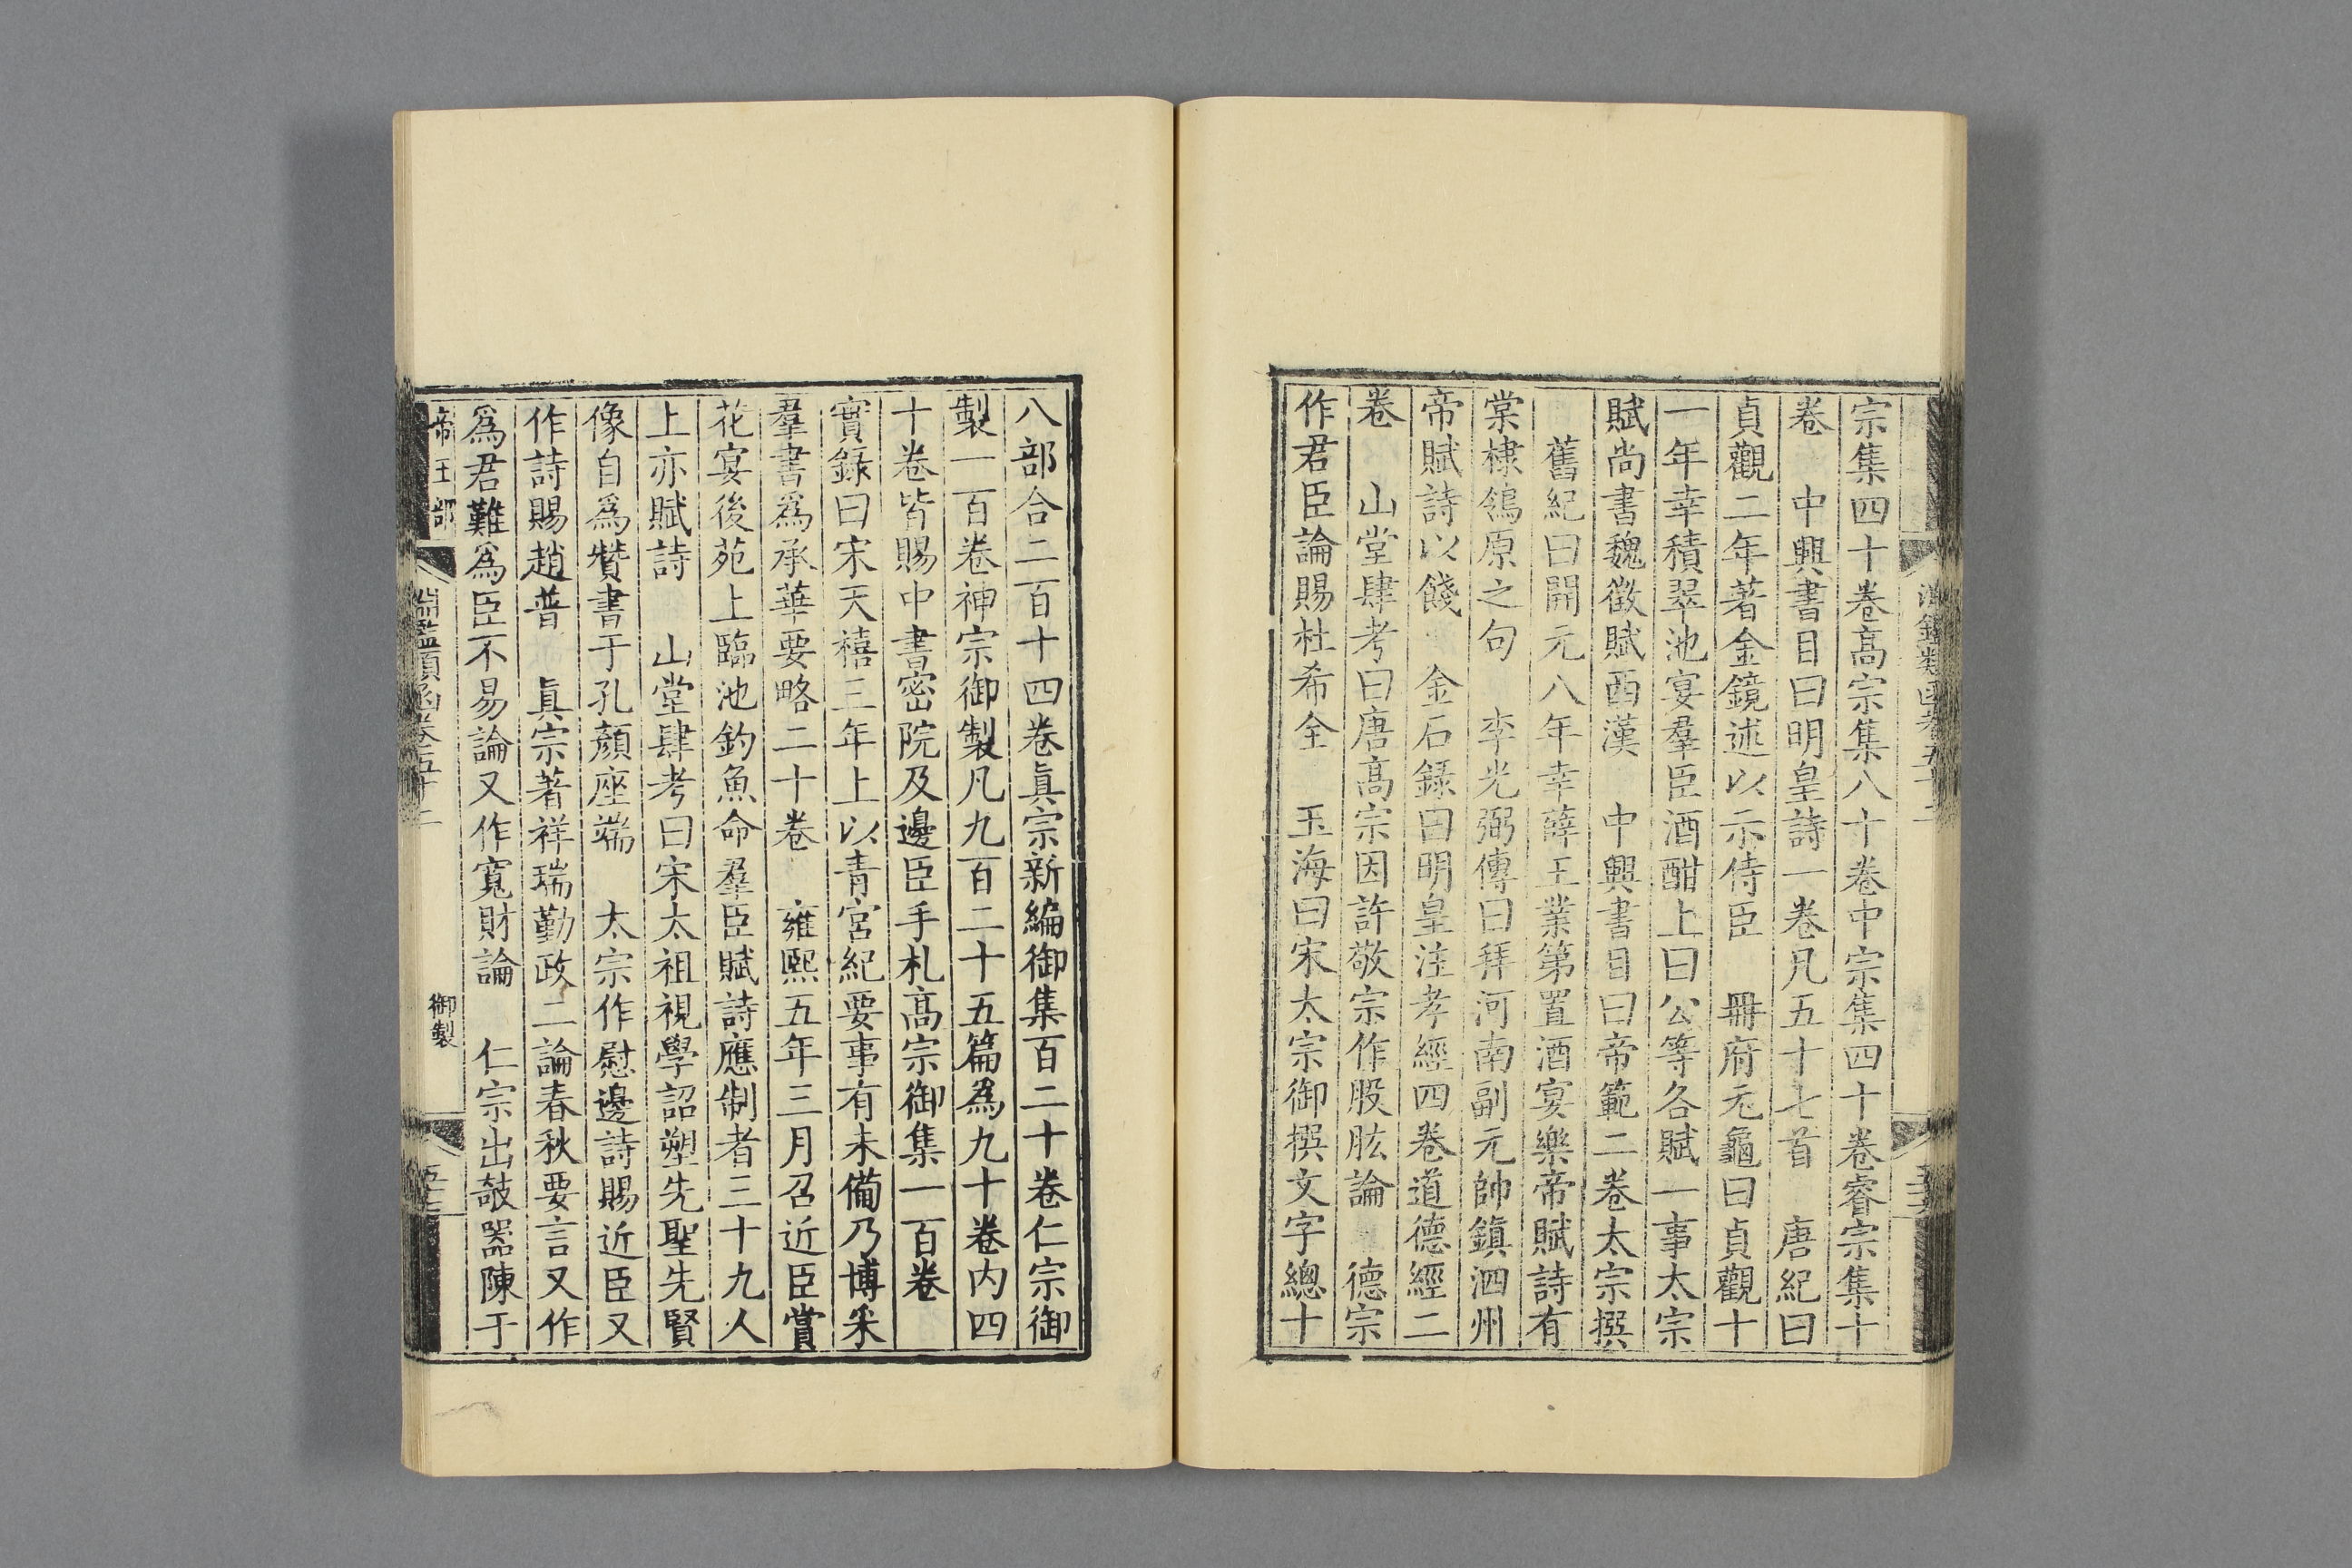 宗集四十卷高宗集八十卷中宗集四十卷睿宗集十
卷　中興書目曰明皇詩一卷凡五十七首　唐紀曰
貞觀二年著金鏡述以示侍臣　冊府元龜曰貞觀十
一年幸積翠池宴羣臣酒酣上曰公等各賦一事太宗
賦尚書魏徵賦西漢　中興書目曰帝範二卷太宗撰
舊紀曰開元八年幸薛王業第置酒宴樂帝賦詩有
棠棣鴒原之句　李光弼傳曰拜河南副元帥鎮泗州
帝賦詩以餞　金石錄曰明皇注孝經四卷道德經二
卷　山堂肆考曰唐高宗因許敬宗作股肱論　德宗
作君臣論賜杜希全　玉海曰宋太宗御撰文字總十
八部合二百十四卷眞宗新編御集百二十卷仁宗御
製一百卷神宗御製凡九百二十五篇爲九十卷內四
十卷皆賜中書密院及邊臣手札高宗御集一百卷
實錄曰宋天禧三年上以青宮紀要事有未備乃博采
羣書爲承華要略二十卷　雍熙五年三月召近臣賞
花宴後苑上臨池釣魚命羣臣賦詩應制者三十九人
上亦賦詩　山堂肆考曰宋太祖視學詔塑先聖先賢
像自爲贊書于孔顏座端　太宗作慰邊詩賜近臣又
作詩賜趙普　眞宗著祥瑞勤政二論春秋要言又作
爲君難爲臣不易論又作寬財論　仁宗出欹器陳于
帝王部　淵鑑類函卷五十二　御製